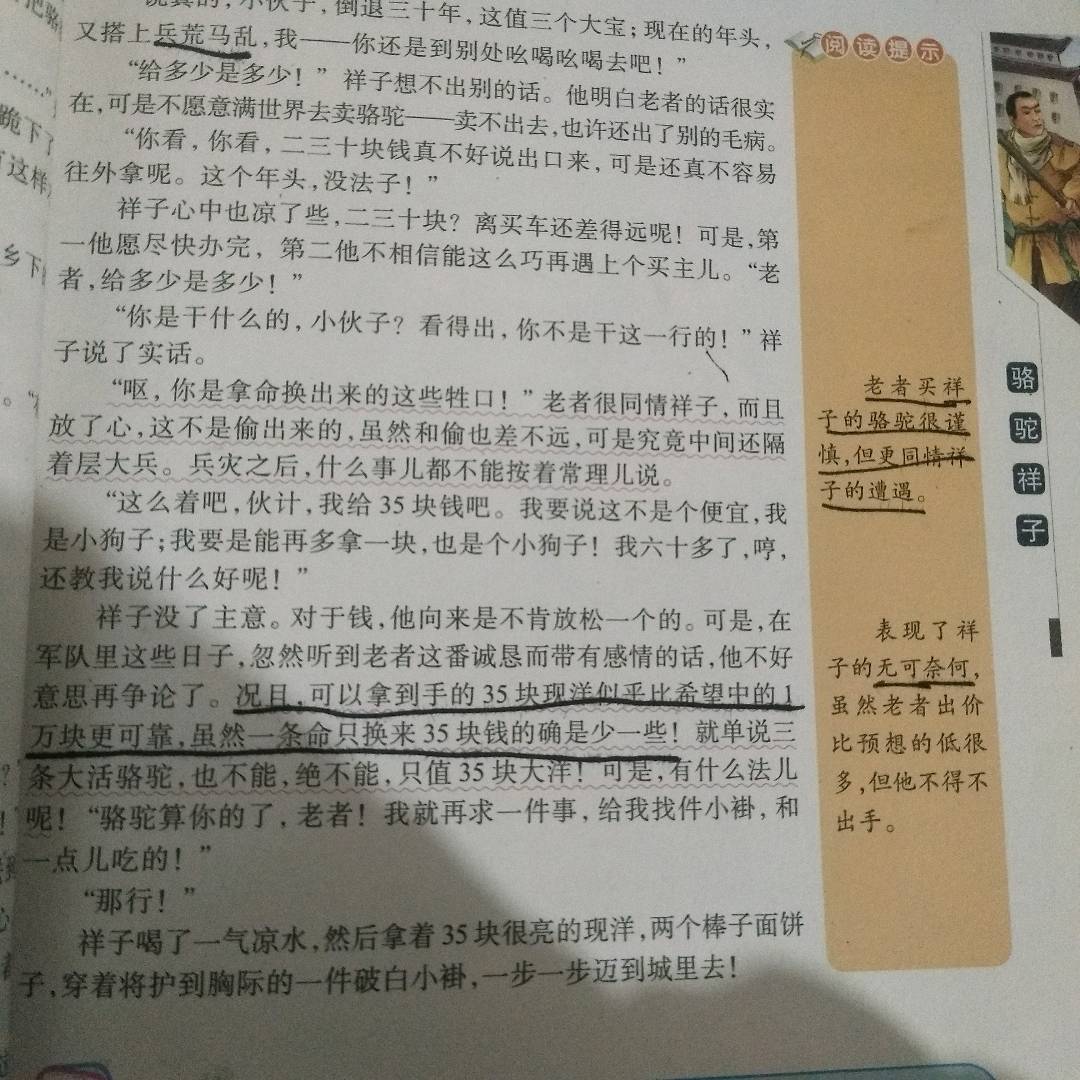 说真的，小伙子，倒退三十年，这值三个大宝；现在的年头，
又搭上兵荒马乱，我——你还是到别处吆喝吆喝去吧！”
“给多少是多少！”祥子想不出别的话。他明白老者的话很实
在，可是不愿意满世界去卖骆驼——卖不出去，也许还出了别的毛病。
“你看，你看，二三十块钱真不好说出口来，可是还真不容易
往外拿呢。这个年头，没法子！”
祥子心中也凉了些，二三十块？离买车还差得远呢！可是，第
一他愿尽快办完，第二他不相信能这么巧再遇上个买主儿。“老
者，给多少是多少！”
“你是干什么的，小伙子？看得出，你不是干这一行的！”祥
子说了实话。
“呕，你是拿命换出来的这些牲口！”老者很同情祥子，而且
放了心，这不是偷出来的，虽然和偷也差不远，可是究竟中间还隔
着层大兵。兵灾之后，什么事儿都不能按着常理儿说。
“这么着吧，伙计，我给35块钱吧。我要说这不是个便宜，我
是小狗子；我要是能再多拿一块，也是个小狗子！我六十多了，哼，
还教我说什么好呢！”
祥子没了主意。对于钱，他向来是不肯放松一个的。可是，在
军队里这些日子，忽然听到老者这番诚恳而带有感情的话，他不好
意思再争论了。况且，可以拿到手的35块现洋似乎比希望中的1
万块更可靠，虽然一条命只换来35块钱的确是少一些！就单说三
条大活骆驼，也不能，绝不能，只值35块大洋！可是，有什么法儿
呢！“骆驼算你的了，老者！我就再求一件事，给我找件小褂，和
一点儿吃的！”
“那行！”
祥子喝了一气凉水，然后拿着35块很亮的现洋，两个棒子面饼
子，穿着将护到胸际的一件破白小褂，一步一步迈到城里去！
阅读提示
老者买祥
子的骆驼很谨
慎，但更同情祥
子的遭遇。
表现了祥
子的无可奈何，
虽然老者出价
比预想的低很
多，但他不得不
出手。
骆
驼
祥
子
跪下了
这样
乡下